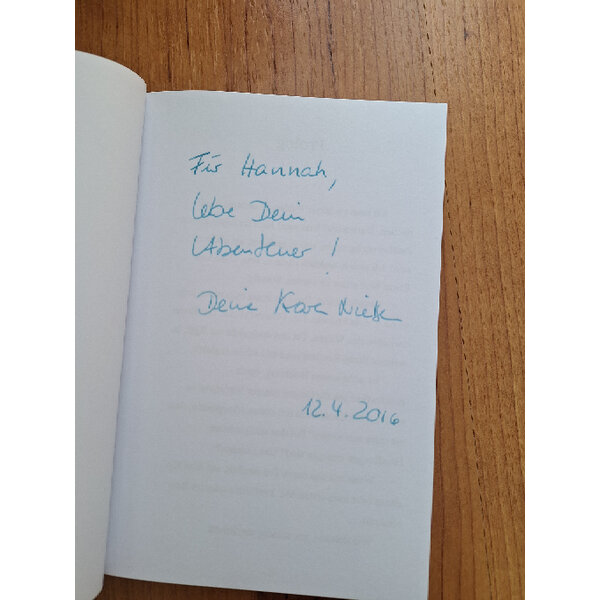 Für Hannah,
lebe Dein
Abenteuer!
Deine
12.4.2016